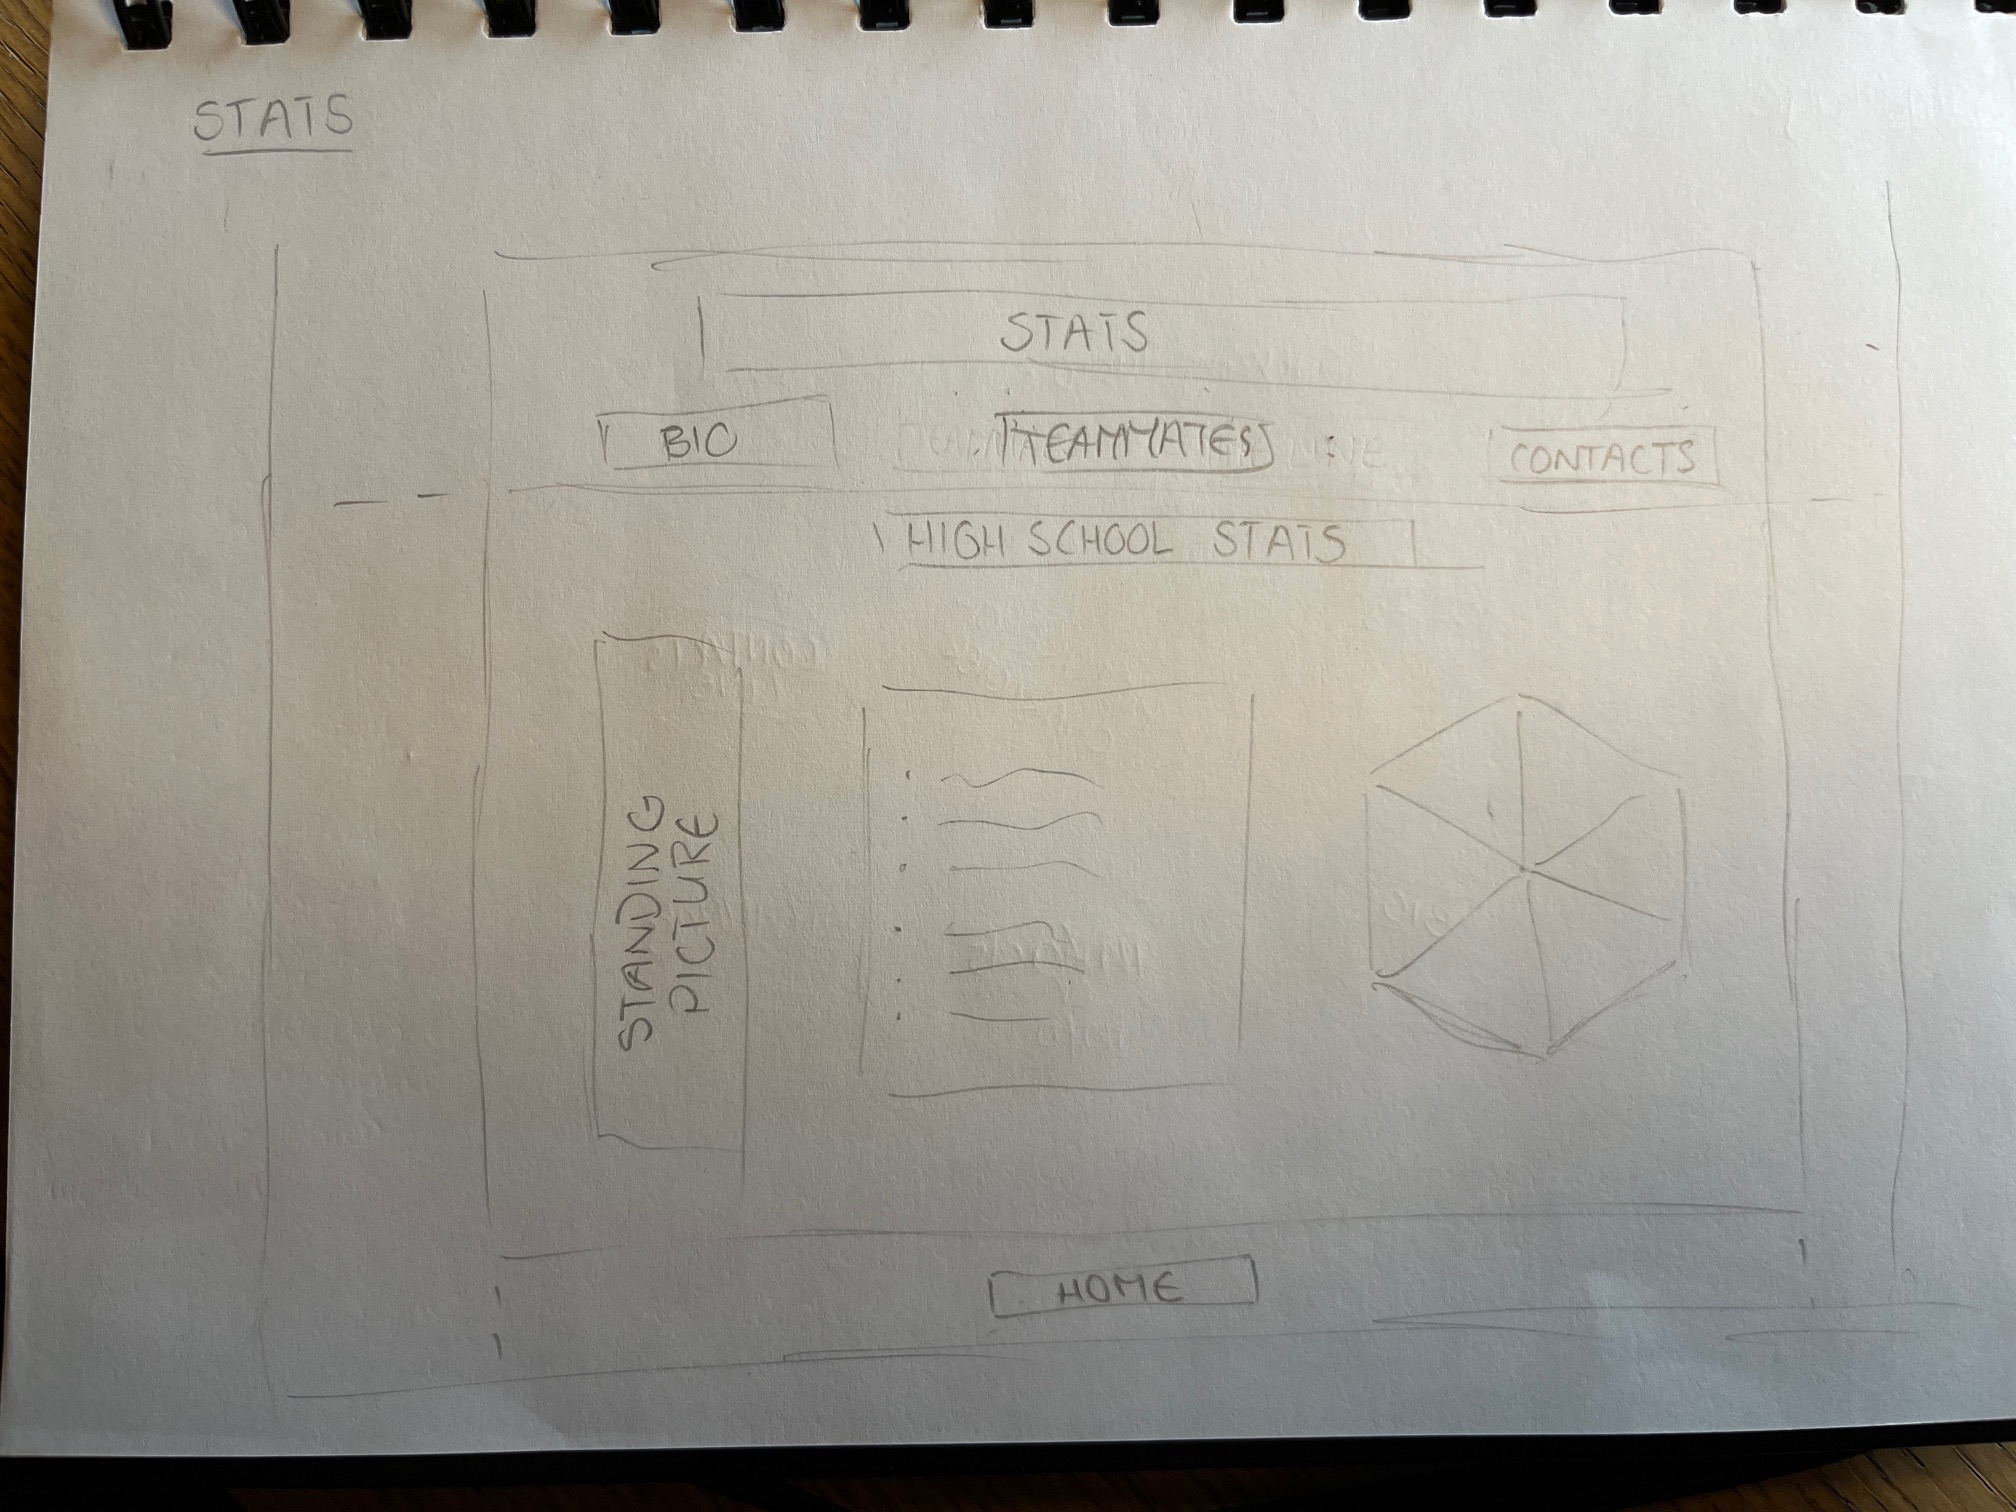 STATS
STATS
BIO
TEAMMATES
CONTACTS
HIGH SCHOOL STATS
STANDING
PICTURE
HOME